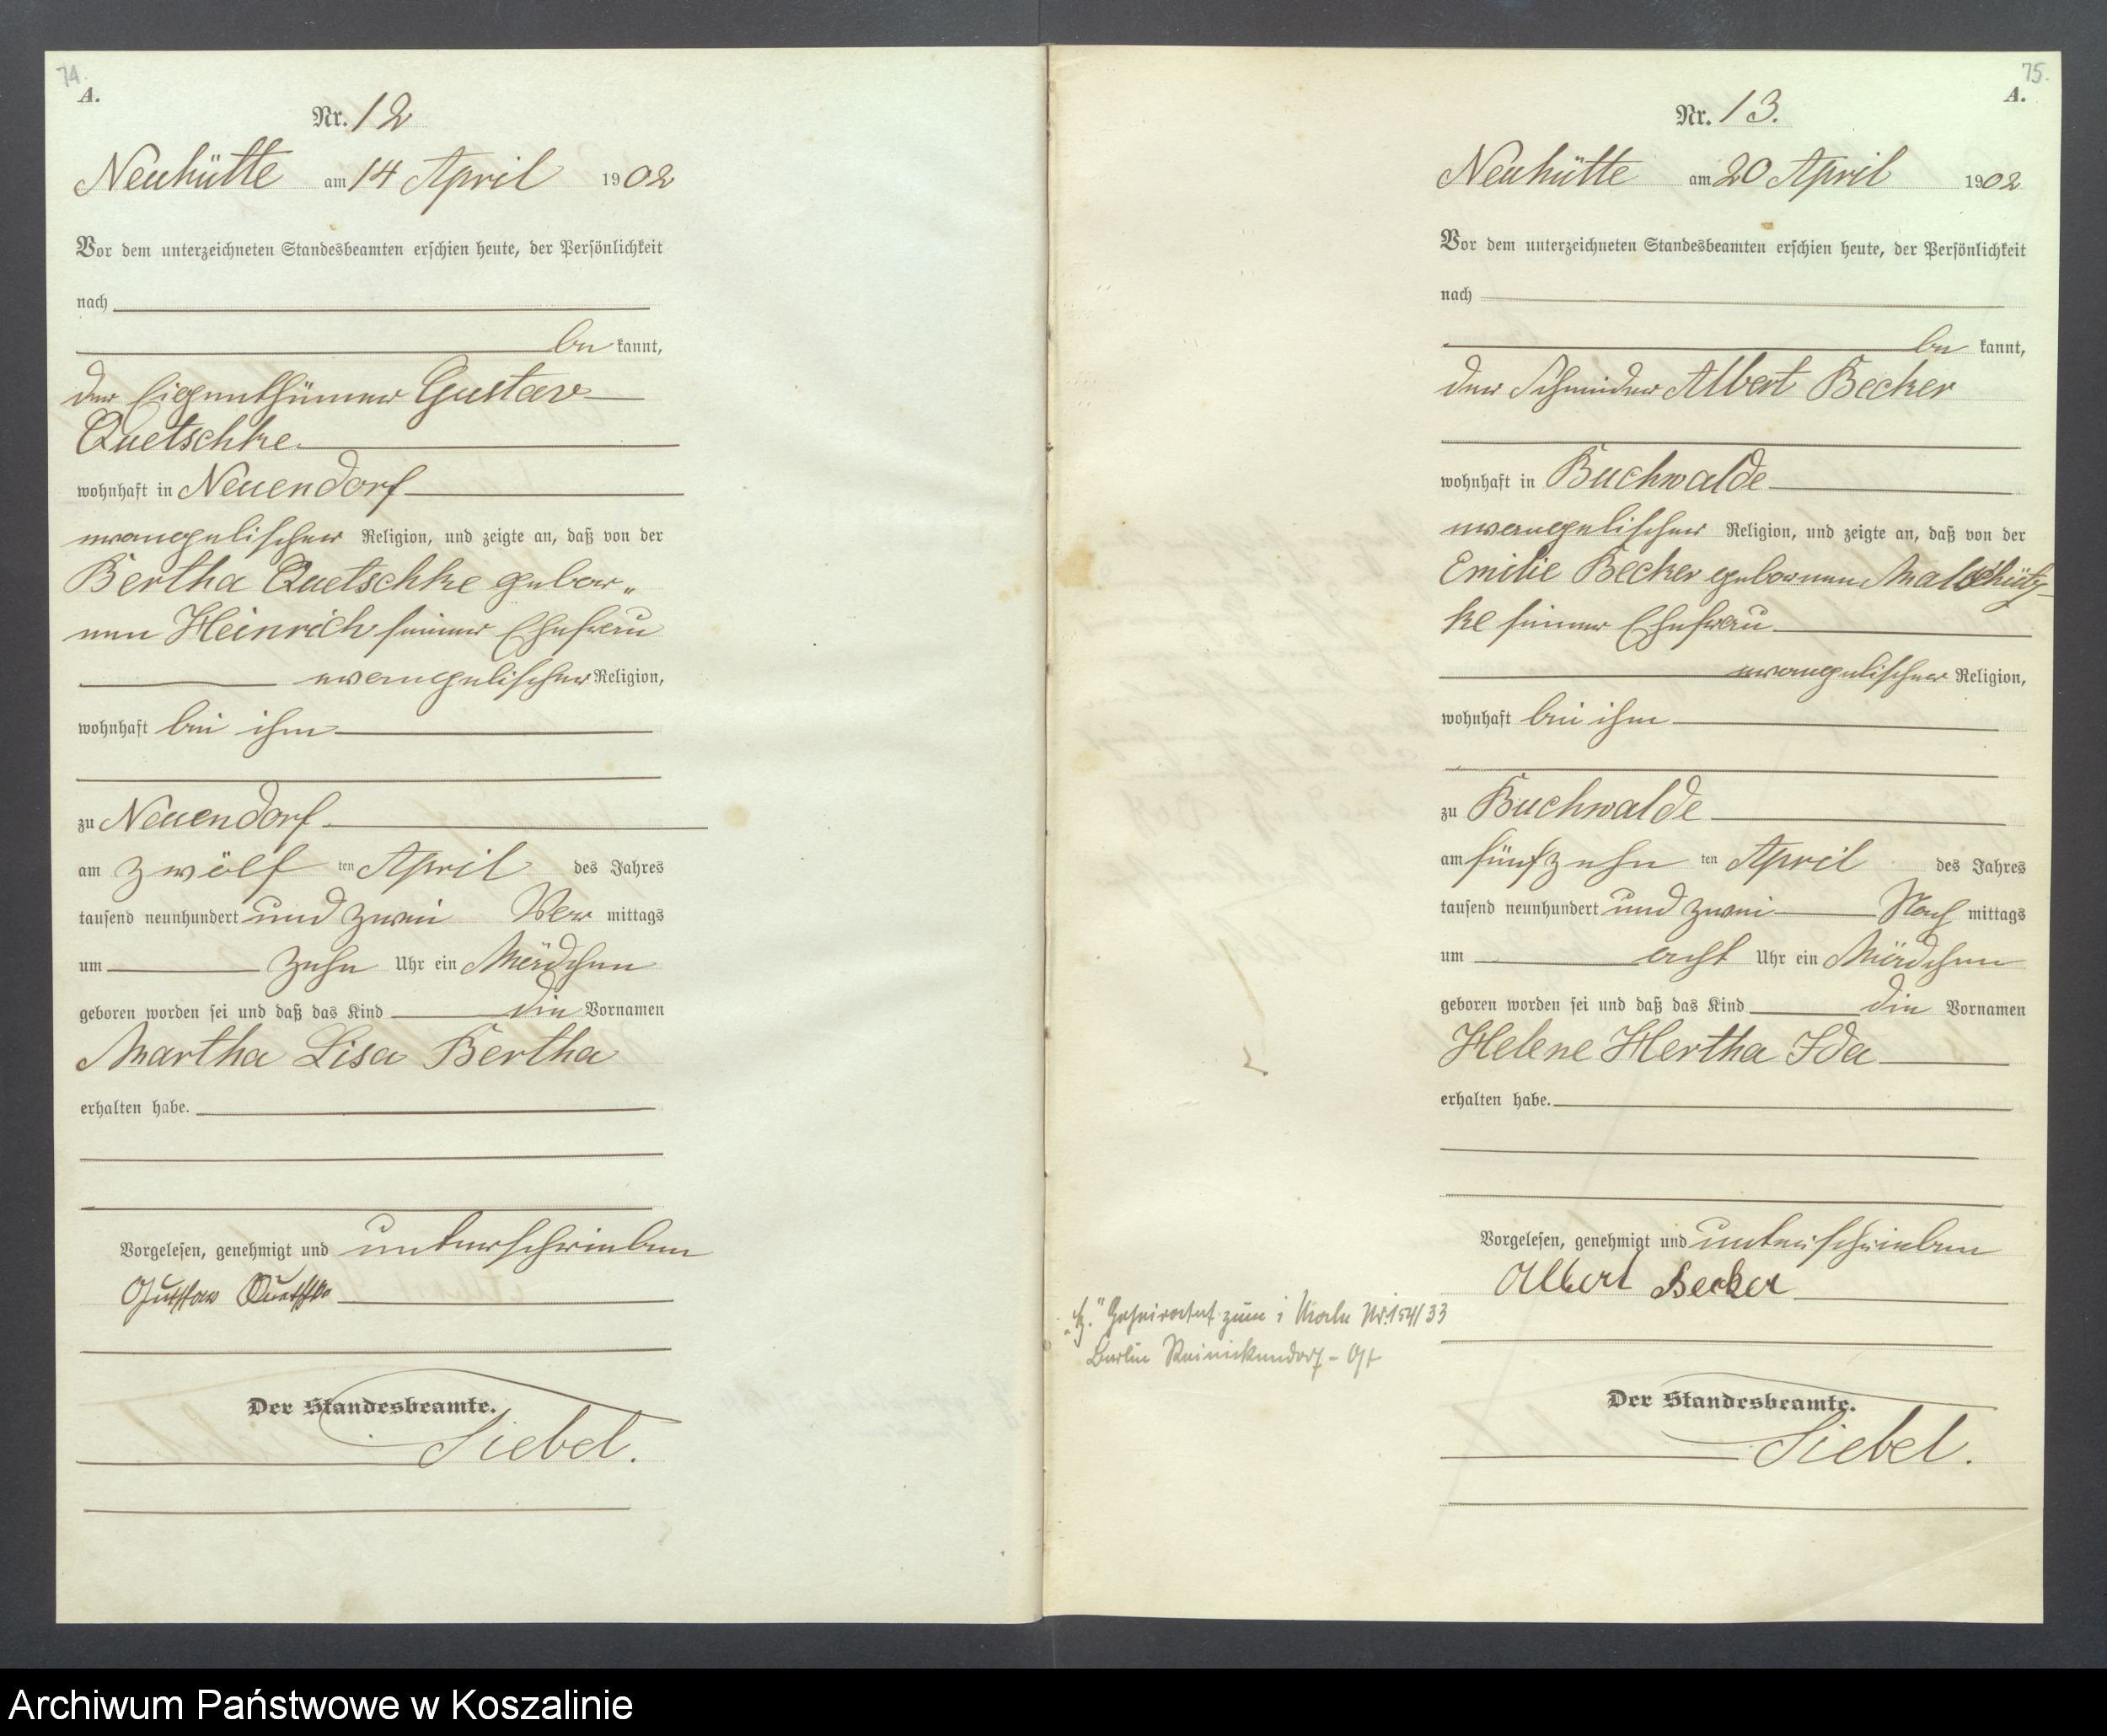 74.
A.
Nr. 12
Neuhütte am 14 April 1902
Vor dem unterzeichneten Standesbeamten erschien heute, der Persönlichkeit
nach
be kannt,
der Eigenthümer Gustav
Quetschke
wohnhaft in Neuendorf
evangelischer Religion, und zeigte an, daß von der
Bertha Quetschke gebor„
nen Heinrich seiner Ehefrau
evangelischer Religion,
wohnhaft bei ihm
zu Neuendorf
am zwölf ten April des Jahres
tausend neunhundert und zwei Vor mittags
um zehn Uhr ein Mädchen
geboren worden sei und daß das Kind die Vornamen
Martha Lisa Bertha
erhalten habe.
Vorgelesen, genehmigt und unterschrieben
Gustav
Der Standesbeamte.
Siebel.
75.
A.
Nr. 13.
Neuhütte am 20 April 1902
Vor dem unterzeichneten Standesbeamten erschien heute, der Persönlichkeit
nach
be kannt,
der Schneider Albert Becker
wohnhaft in Buchwalde
evangelischer Religion, und zeigte an, daß von der
Emilie Becker gebornen Malschütz-
ke seiner Ehefrau
evangelischer Religion,
wohnhaft bei ihm
zu Buchwalde
am fünfzehn ten April des Jahres
tausend neunhundert und zwei Nach mittags
um acht Uhr ein Mädchen
geboren worden sei und daß das Kind die Vornamen
Helene Hertha Ida
erhalten habe.
Vorgelesen, genehmigt und unterschrieben
Albert Becker
Geheiratet zum 1 Male Nr. 154/33
Berlin Reinickendorf - Ost
Der Standesbeamte.
Siebel.
Archiwum Państwowe w Koszalinie